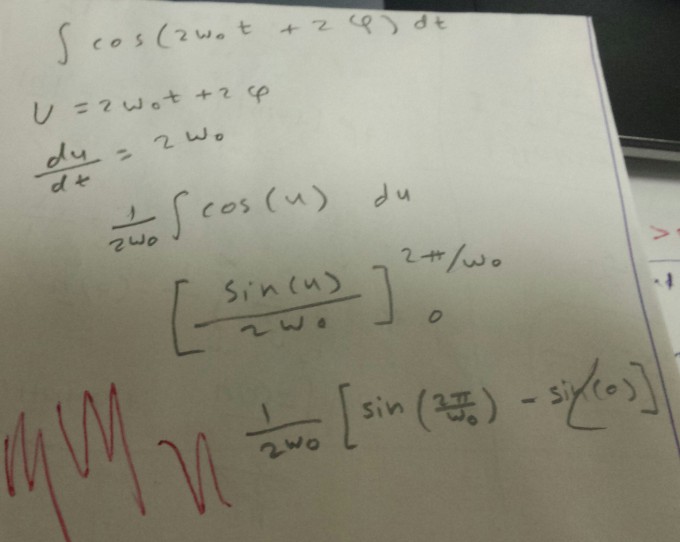 ∫ cos(2ω₀t + 2φ) dt
U = 2ω₀t + 2φ
du/dt = 2ω₀
1/2ω₀ ∫ cos(u) du
[sin(u)/2ω₀]₀^2π/ω₀
1/2ω₀ [sin(2π/ω₀) - sin(0)]